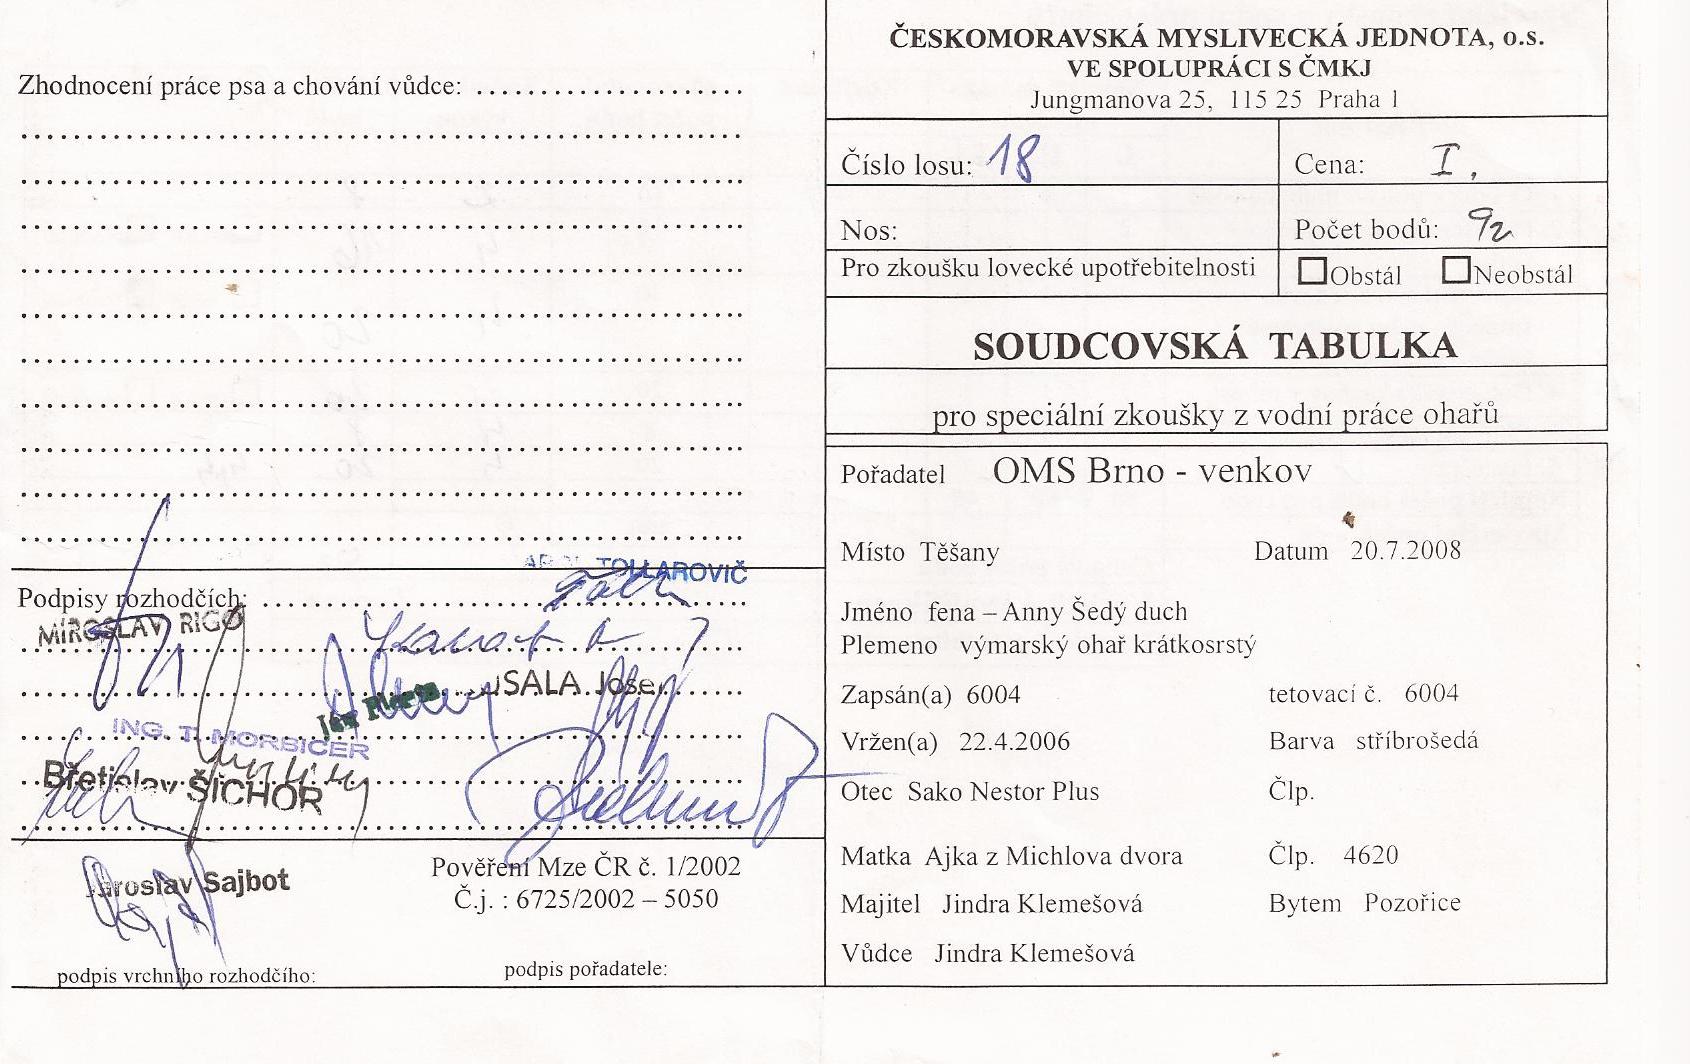 Zhodnocení práce psa a chování vůdce:
Podpisy rozhodčích:
TOLLAROVIČ
MIROSLAV RIGO
SALA Josef
Jan
ING. T. MORBICER
Břetislav ŠICHOR
Jaroslav Sajbot
Pověření Mze ČR č. 1/2002
Č.j. : 6725/2002 – 5050
podpis vrchního rozhodčího:
podpis pořadatele:
ČESKOMORAVSKÁ MYSLIVECKÁ JEDNOTA, o.s.
VE SPOLUPRÁCI S ČMKJ
Jungmanova 25, 115 25 Praha 1
Číslo losu: 18
Cena: I.
Nos:
Počet bodů: 92
Pro zkoušku lovecké upotřebitelnosti
Obstál Neobstál
SOUDCOVSKÁ TABULKA
pro speciální zkoušky z vodní práce ohařů
Pořadatel OMS Brno - venkov
Místo Těšany Datum 20.7.2008
Jméno fena – Anny Šedý duch
Plemeno výmarský ohař krátkosrstý
Zapsán(a) 6004 tetovací č. 6004
Vržen(a) 22.4.2006 Barva stříbrošedá
Otec Sako Nestor Plus Člp.
Matka Ajka z Michlova dvora Člp. 4620
Majitel Jindra Klemešová Bytem Pozořice
Vůdce Jindra Klemešová